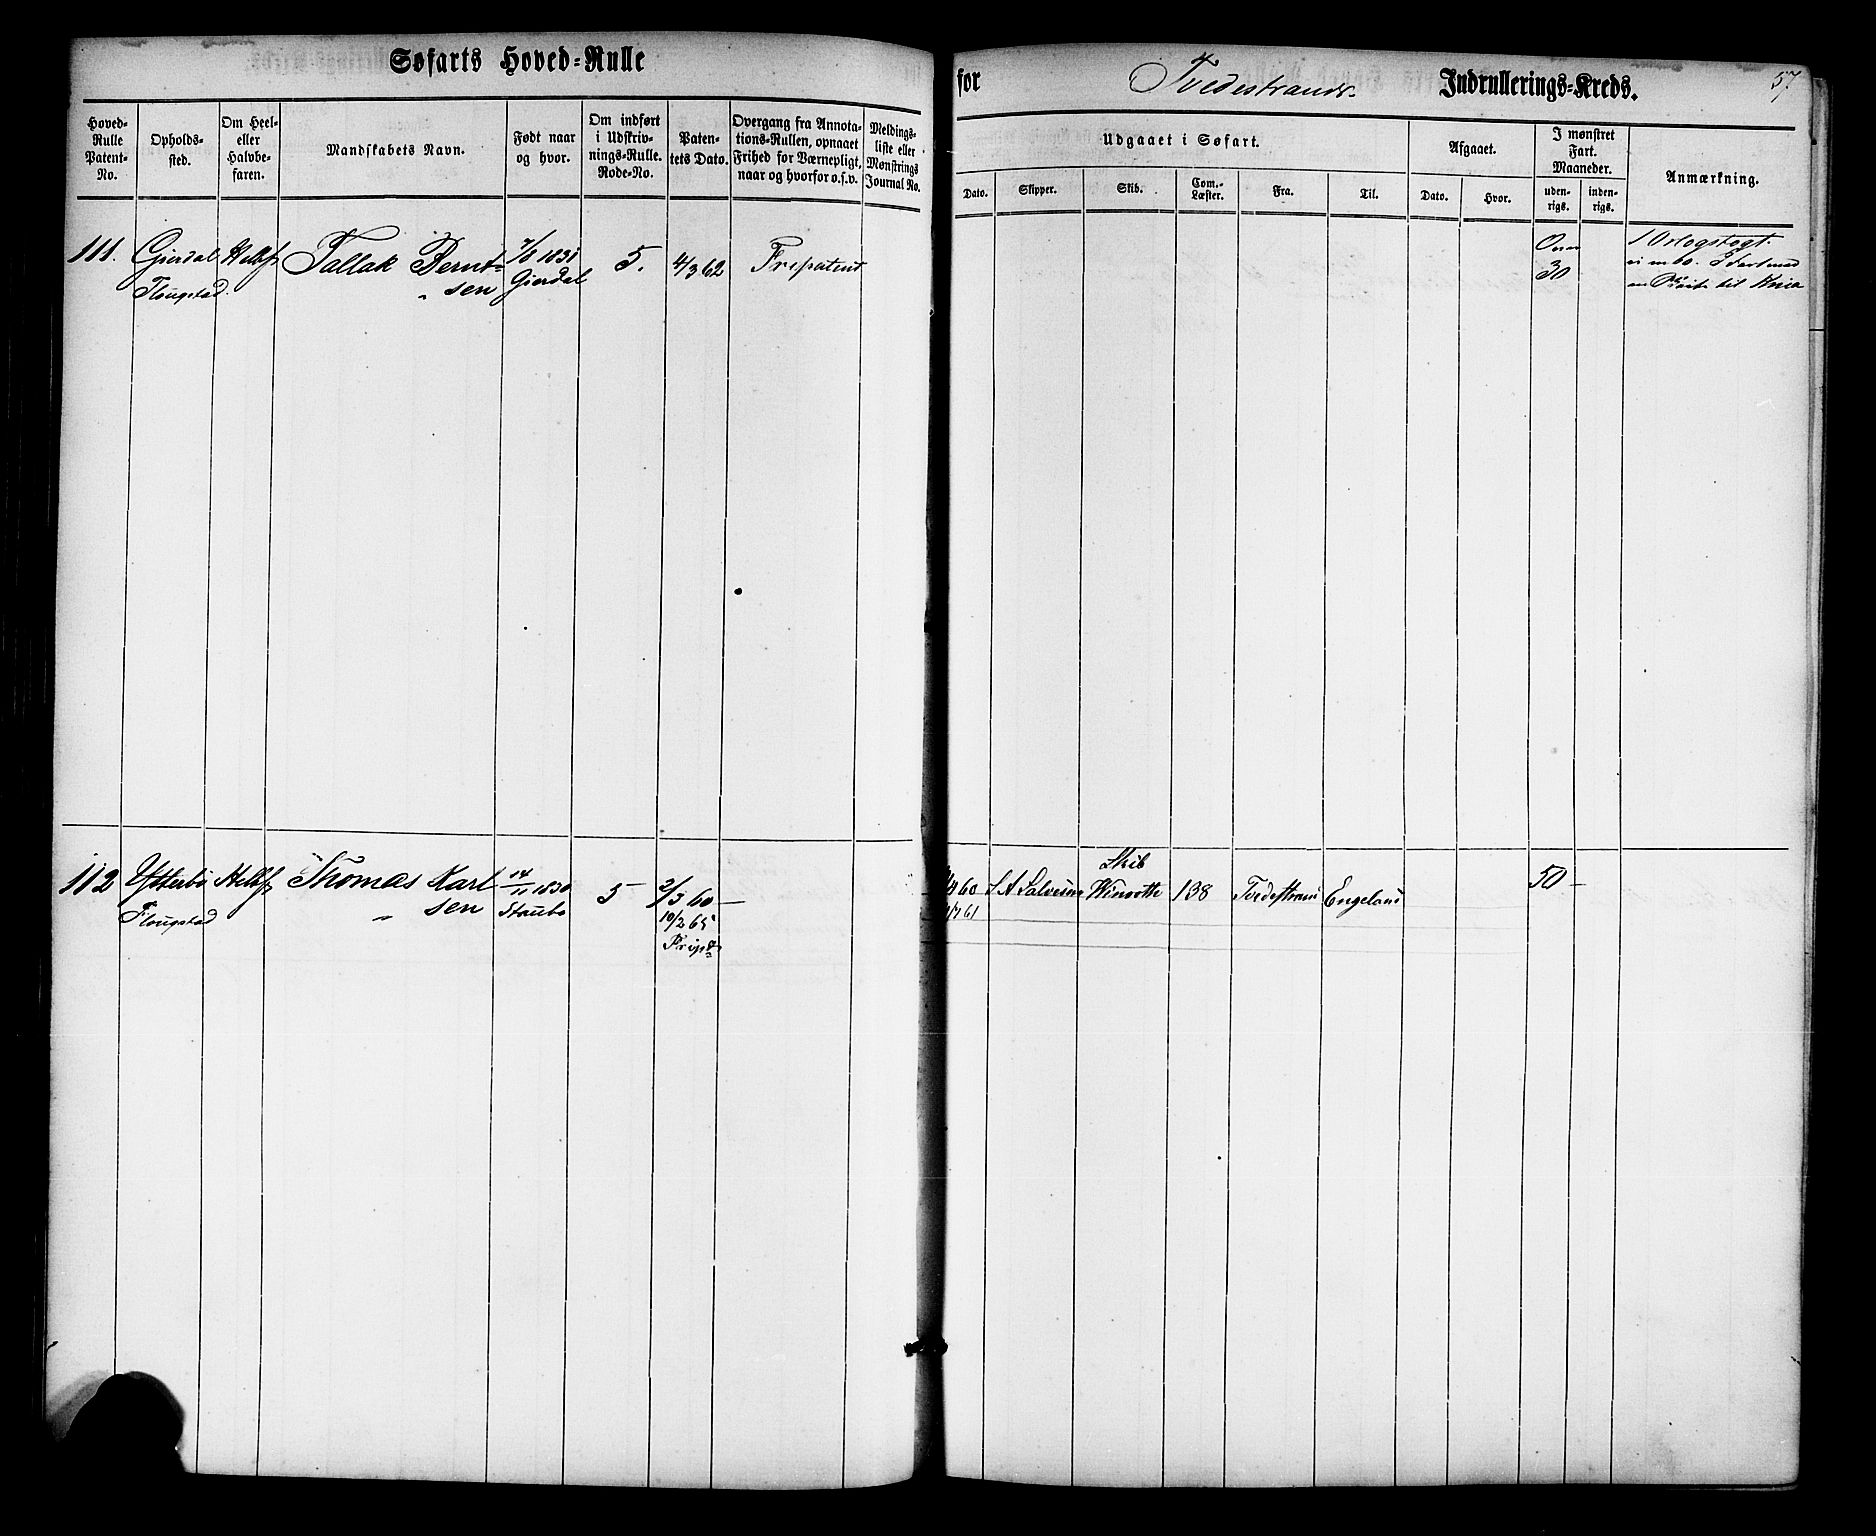 Søfarts Hoved-Rulle
for Tvedestrands Indrullerings-Kreds.
57.
Hoved-
Rulle
Patent-
No.
Opholds-
sted.
Om Heel-
eller
Halvbe-
faren.
Mandskabets Navn.
Født naar
og hvor.
Om indført
i Udskriv-
nings-Rulle.
Rode-No.
Paten-
tets Dato.
Overgang fra Annota-
tions-Rullen, opnaaet
Frihed for Værnepligt,
naar og hvorfor o.s.v.
Meldings-
liste eller
Mønstrings
Journal No.
Udgaaet i Søfart.
Dato.
Skipper.
Skib.
Com.-
Læster.
Fra.
Til.
Afgaaet.
Dato.
Hvor.
I mønstret
Fart.
Maaneder.
uden-
rigs.
inden-
rigs.
Anmærkning.
111. Gjerdal Helbf Tallak Bernt- 7/8 1831 5. 4/3 62 Fripatent
Flougstad. " sen Gjerdal
Over 1 Orlogstogt.
30
til
112 Ytterbö Helbf Thomas Karl 14/11 1830 5 2/3 60 —
Flougstad " sen Staubö 10/2 65
Frip
Skib
60 S A Salvesen 138 Tvedestrand Engeland 50 —
61